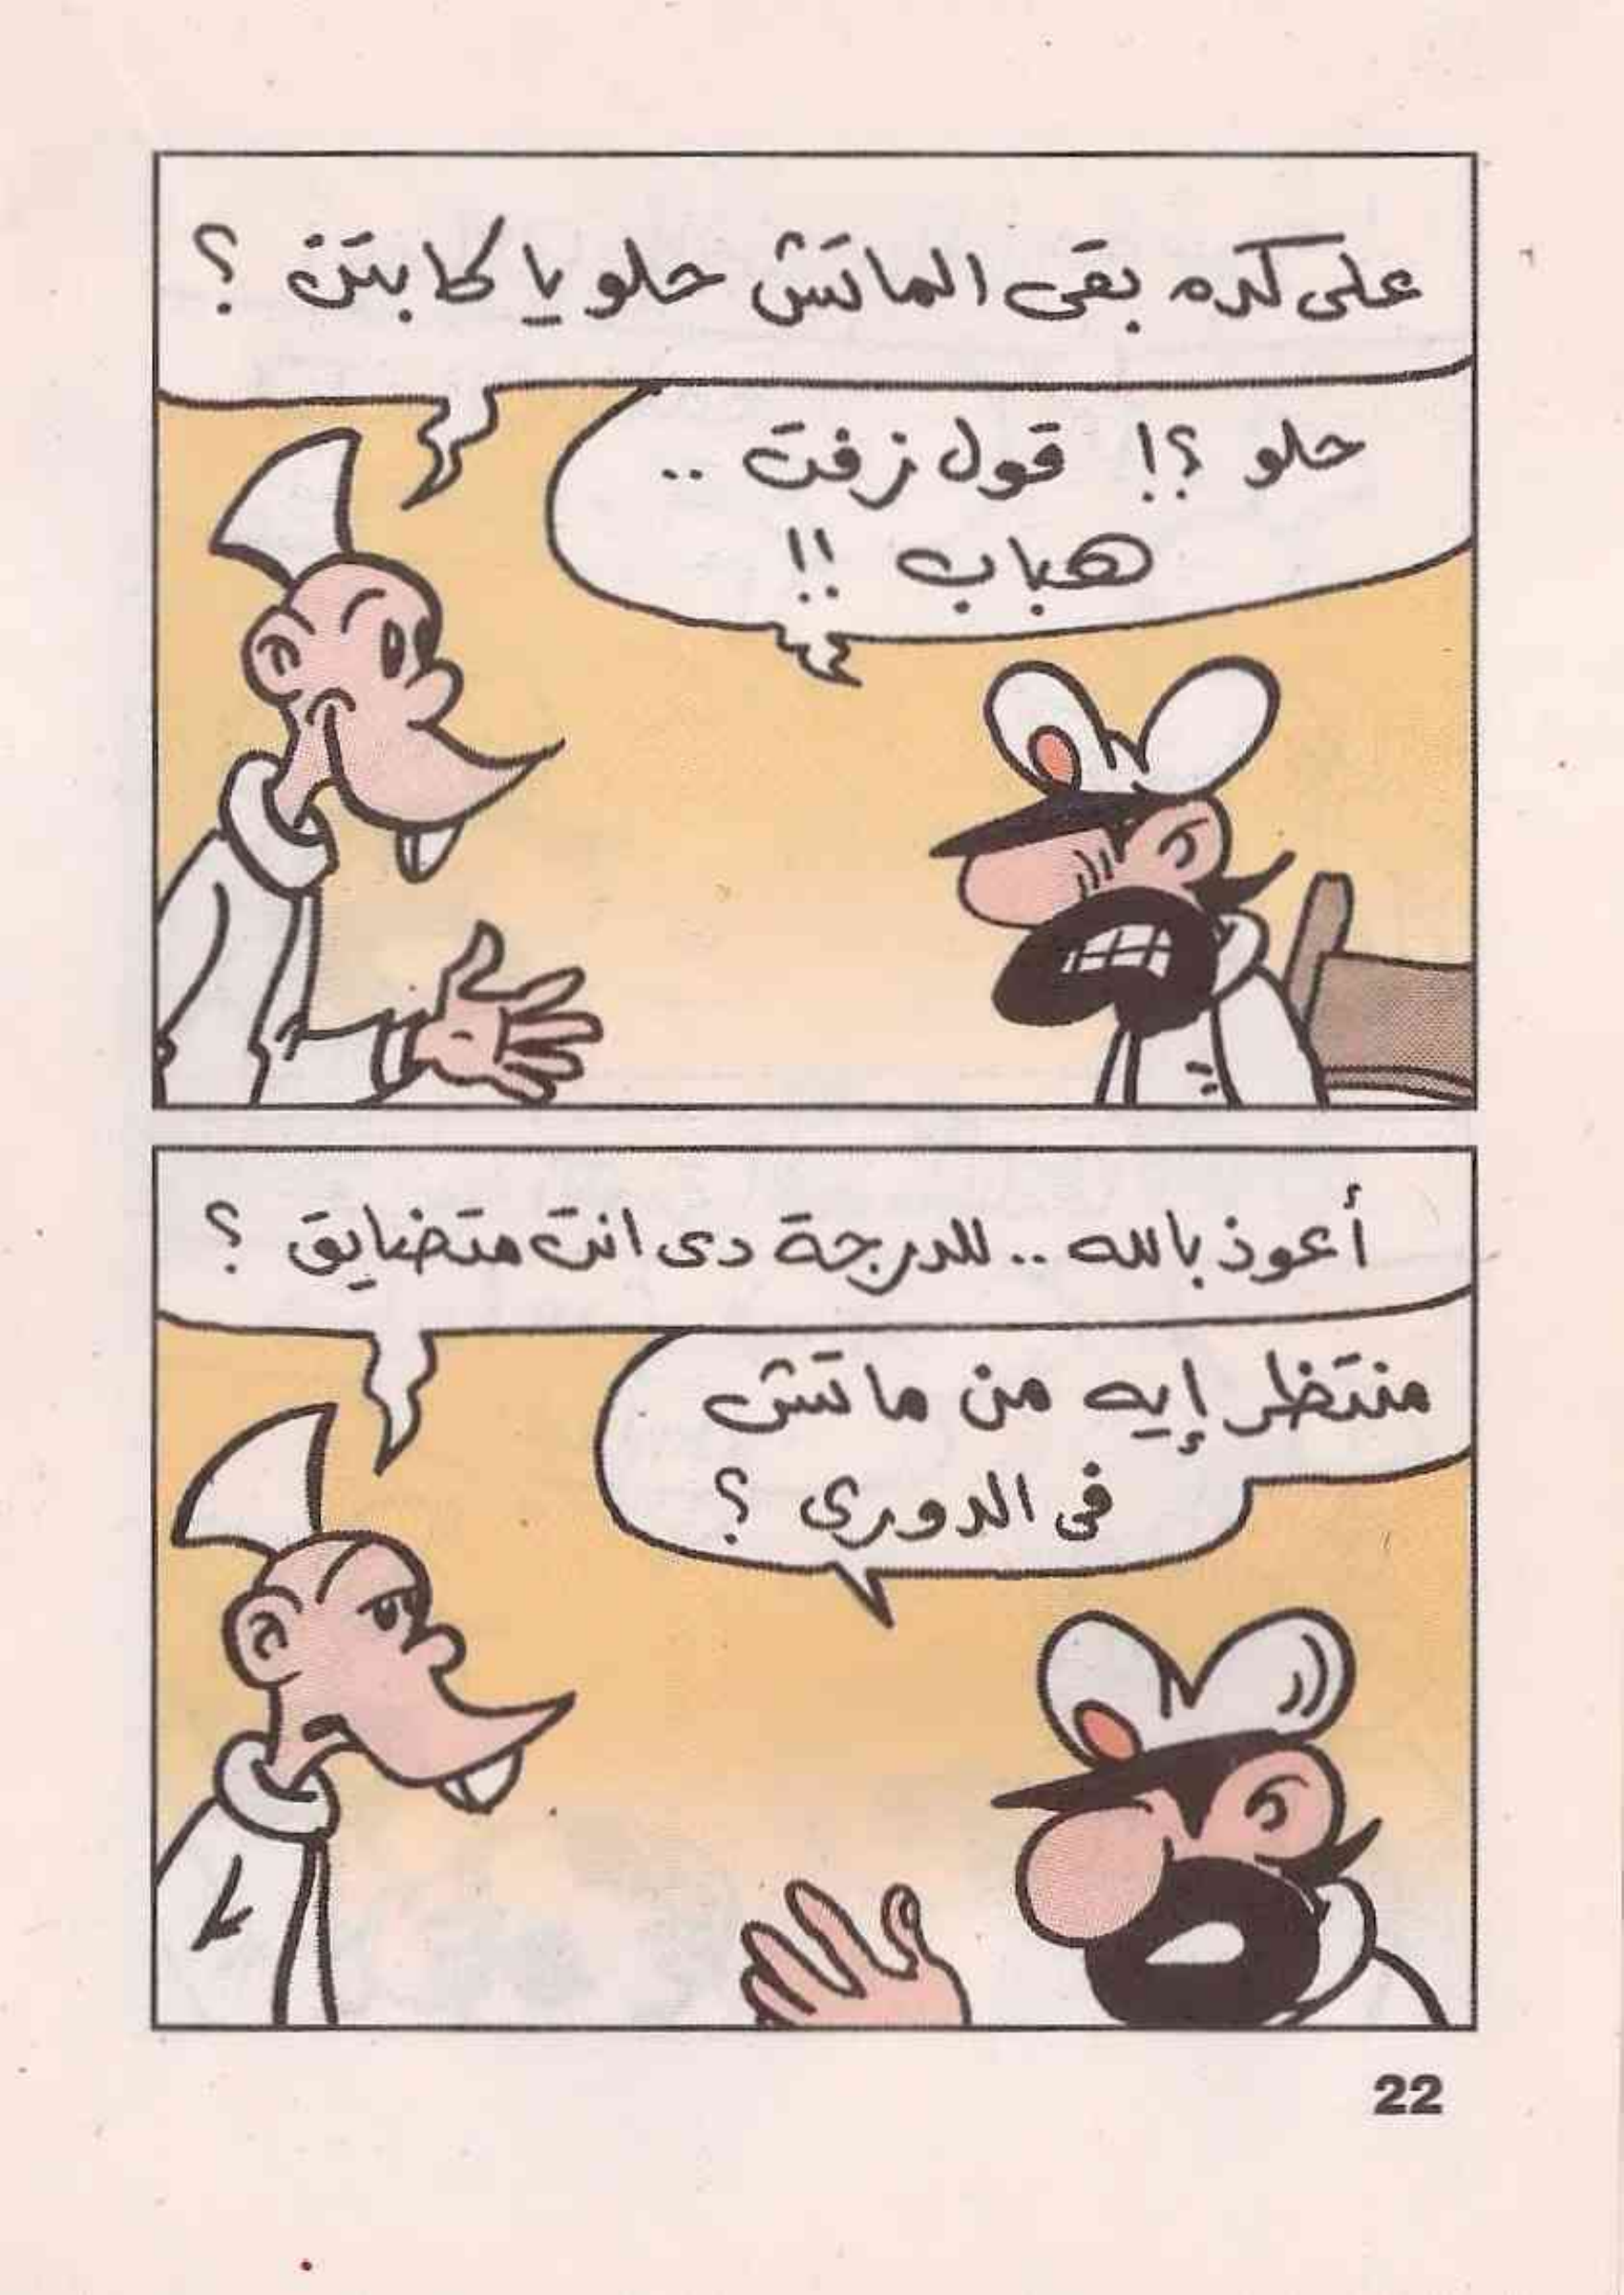 على كده بقى الماتش حلو يا كابتن ؟
حلو ؟! قول زفت ..
هباب !!
أعوذ بالله .. للدرجة دى انت متضايق ؟
منتظر إيه من ماتش
فى الدورى ؟
22